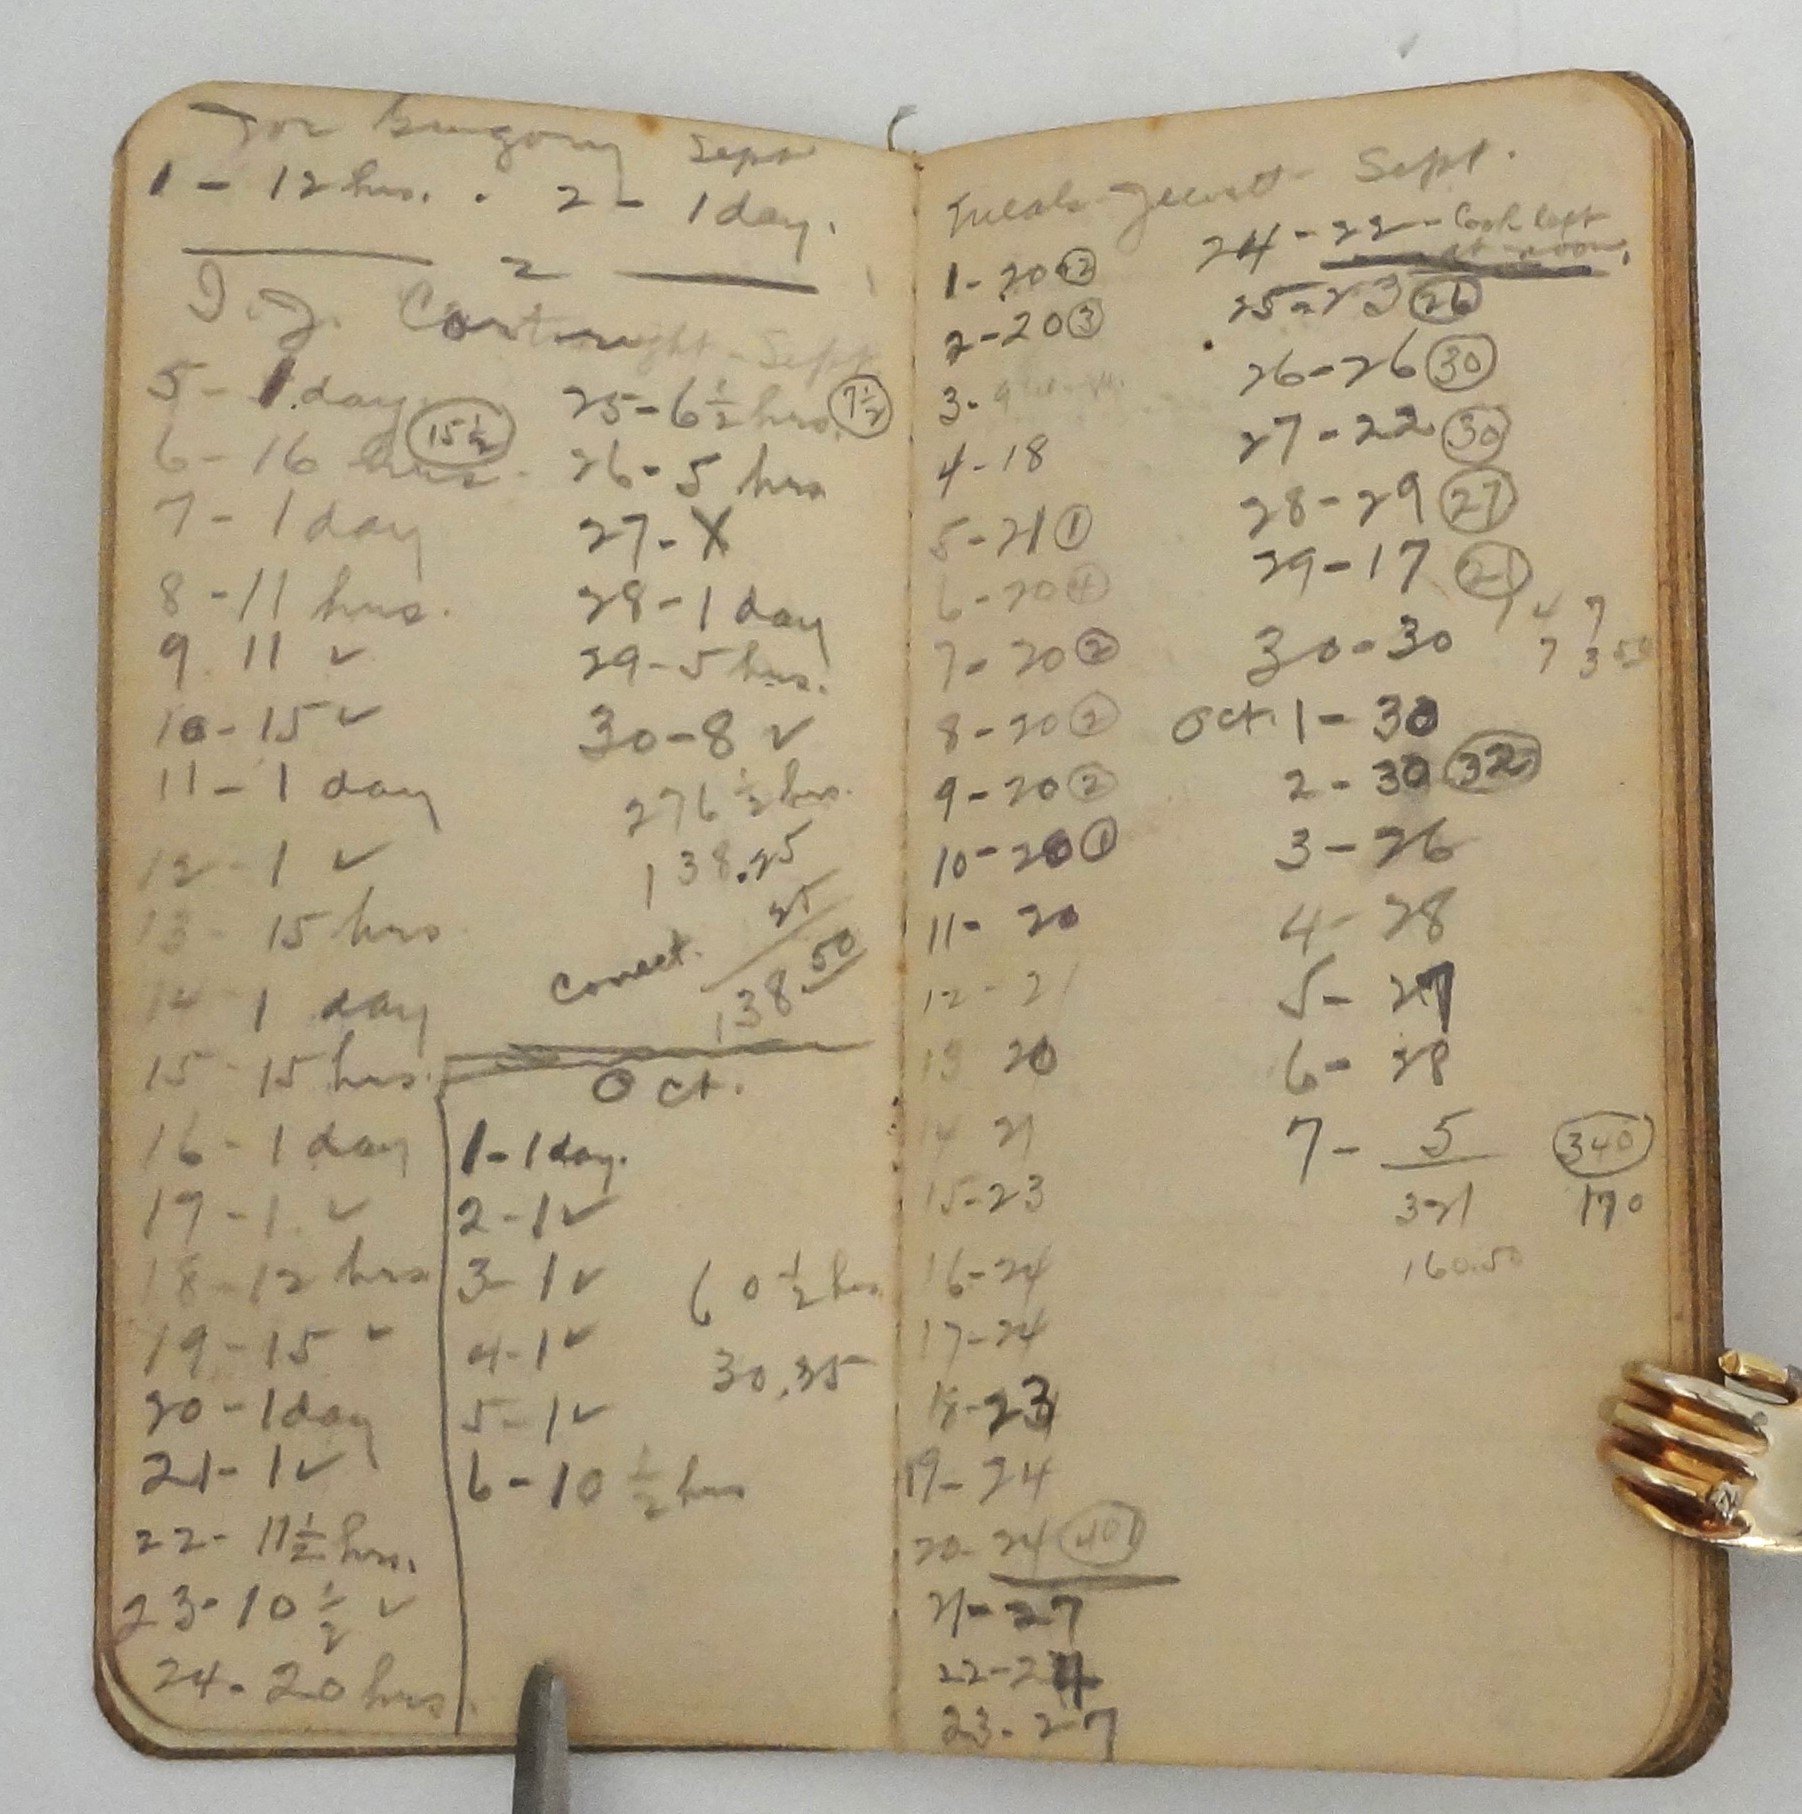 For Gregory Sept
1 - 12 hrs. . 2 - 1 day.
2
J. J. Cartwright - Sept
5 - 1 day
6 - 16 hrs 15 1/2
7 - 1 day
8 - 11 hrs.
9 11 ✓
10 - 15 ✓
11 - 1 day
12 - 1 ✓
13 - 15 hrs
14 - 1 day
15 - 15 hrs.
16 - 1 day
17 - 1 ✓
18 - 12 hrs
19 - 15 ✓
20 - 1 day
21 - 1 ✓
22 - 11 1/2 hrs.
23 - 10 1/2 ✓
24 - 20 hrs.
25 - 6 1/2 hrs. 7 1/2
26 - 5 hrs
27 - X
28 - 1 day
29 - 5 hrs.
30 - 8 ✓
276 1/2 hrs.
138.25
25
Correct. 138.50
Oct.
1 - 1 day.
2 - 1 ✓
3 - 1 ✓
4 - 1 ✓
5 - 1 ✓
6 - 10 1/2 hrs
60 1/2 hrs
30.25
Meals Sept.
1 - 20
2 - 20 3
3 - 9
4 - 18
5 - 21 1
6 - 20 4
7 - 20 2
8 - 20 2
9 - 20 2
10 - 20 1
11 - 20
12 - 21
13 20
14 21
15 - 23
16 - 24
17 - 24
18 - 23
19 - 24
20 - 24 401
21 - 27
22 - 24
23 - 27
24 - 22 - Cook left
at noon.
25 - 23 26
26 - 26 30
27 - 22 30
28 - 29 27
29 - 17 21
30 - 30
Oct. 1 - 30
2 - 30 32
3 - 26
4 - 28
5 - 27
6 - 28
7 - 5 340
321 170
160.50